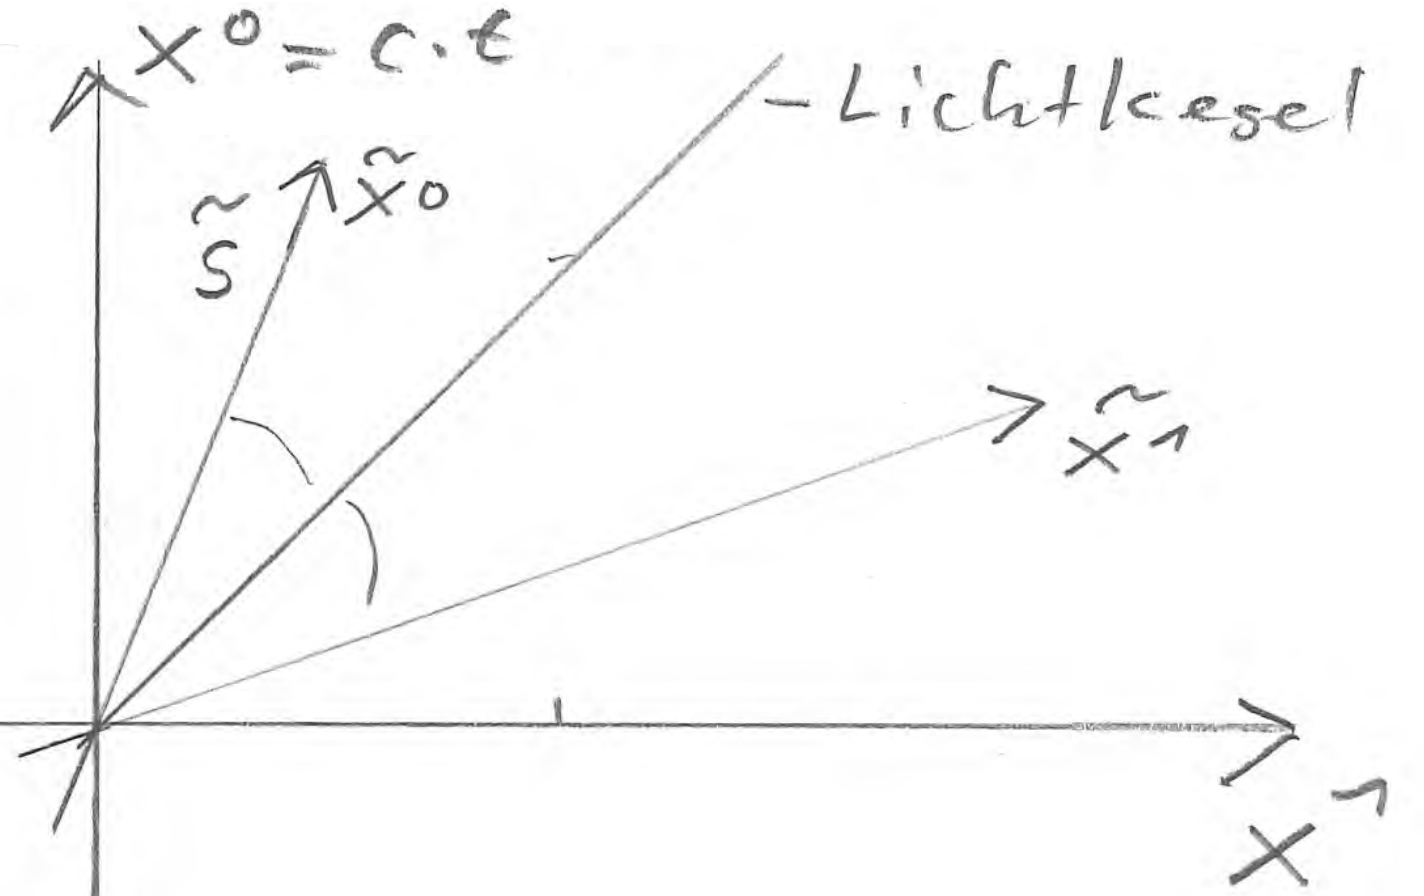 x⁰ = c·t
-Lichtkegel
x̃⁰
S̃
x̃¹
x¹